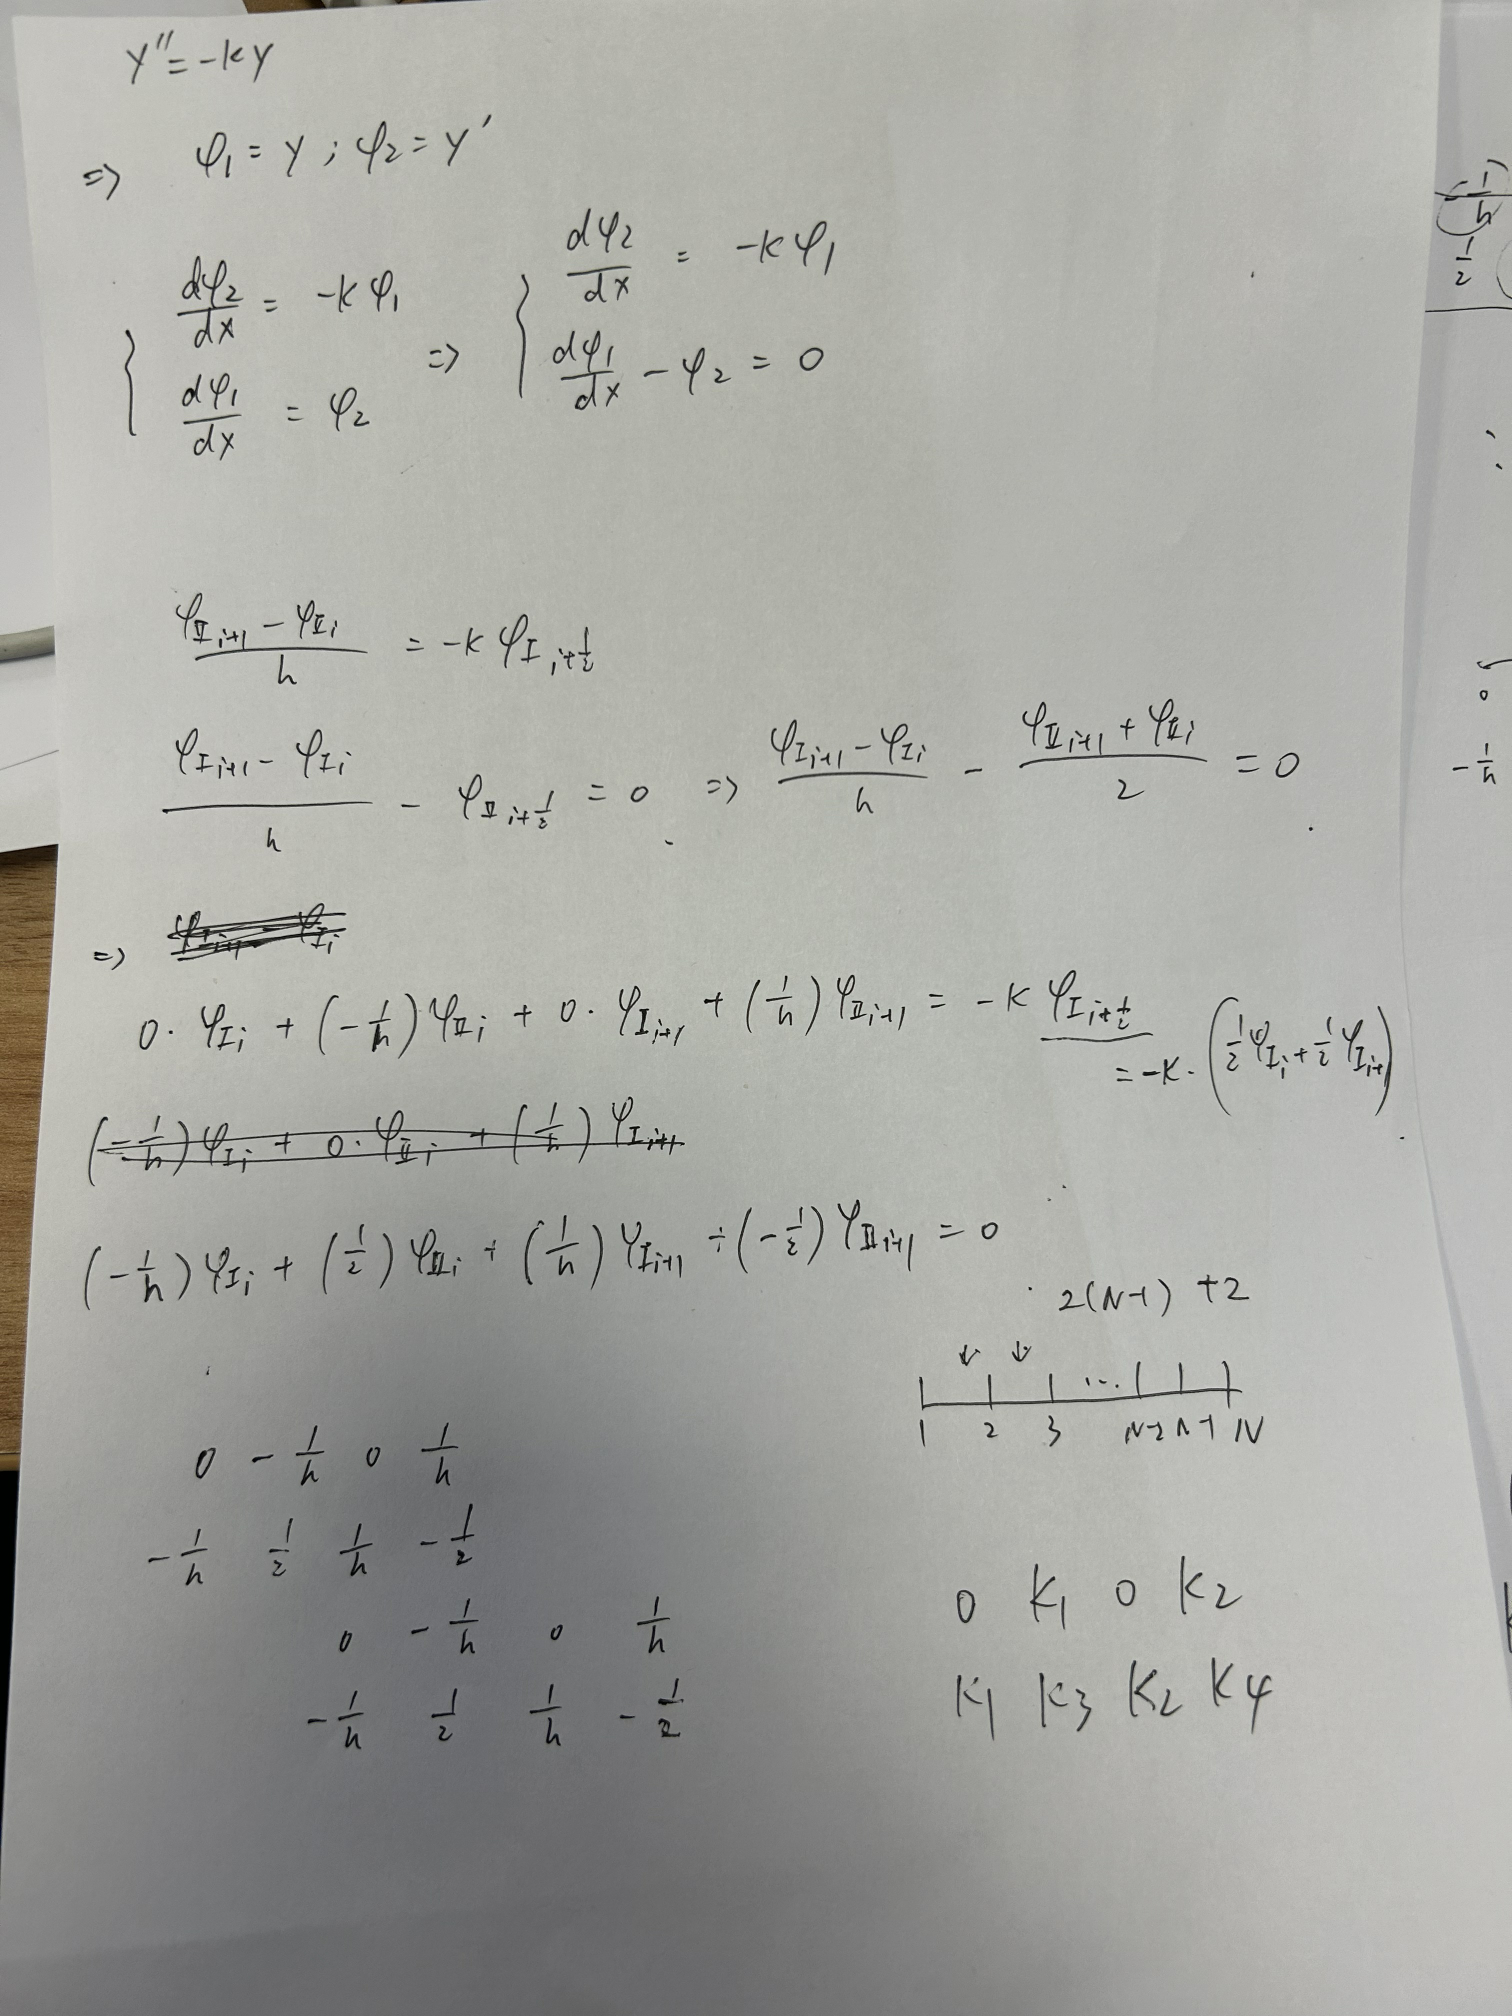 y'' = -ky
⇒ φ₁ = y ; φ₂ = y'
{ dφ₂/dx = -kφ₁ ⇒ { dφ₂/dx = -kφ₁
dφ₁/dx = φ₂ dφ₁/dx - φ₂ = 0
(φ_{II i+1} - φ_{II i})/h = -k φ_{I, i+1/2}
(φ_{I i+1} - φ_{I i})/h - φ_{II i+1/2} = 0 ⇒ (φ_{I i+1} - φ_{I i})/h - (φ_{II i+1} + φ_{II i})/2 = 0
⇒ φ_{I i+1} - φ_{I i}
0· φ_{I i} + (-1/h) φ_{II i} + 0· φ_{I i+1} + (1/h) φ_{II i+1} = -k φ_{I i+1/2}
= -k· (1/2 φ_{I i} + 1/2 φ_{I i+1})
(-1/h) φ_{I i} + 0· φ_{II i} + (1/h) φ_{I i+1}
(-1/h) φ_{I i} + (1/2) φ_{II i} + (1/h) φ_{I i+1} + (-1/2) φ_{II i+1} = 0
2(N-1) +2
↓ ↓
...
1 2 3 N-2 N-1 N
0 -1/h 0 1/h
-1/h 1/2 1/h -1/2
0 -1/h 0 1/h
-1/h 1/2 1/h -1/2
0 K₁ 0 K₂
K₁ K₃ K₂ K₄
-1/h
1/2
0
-1/h